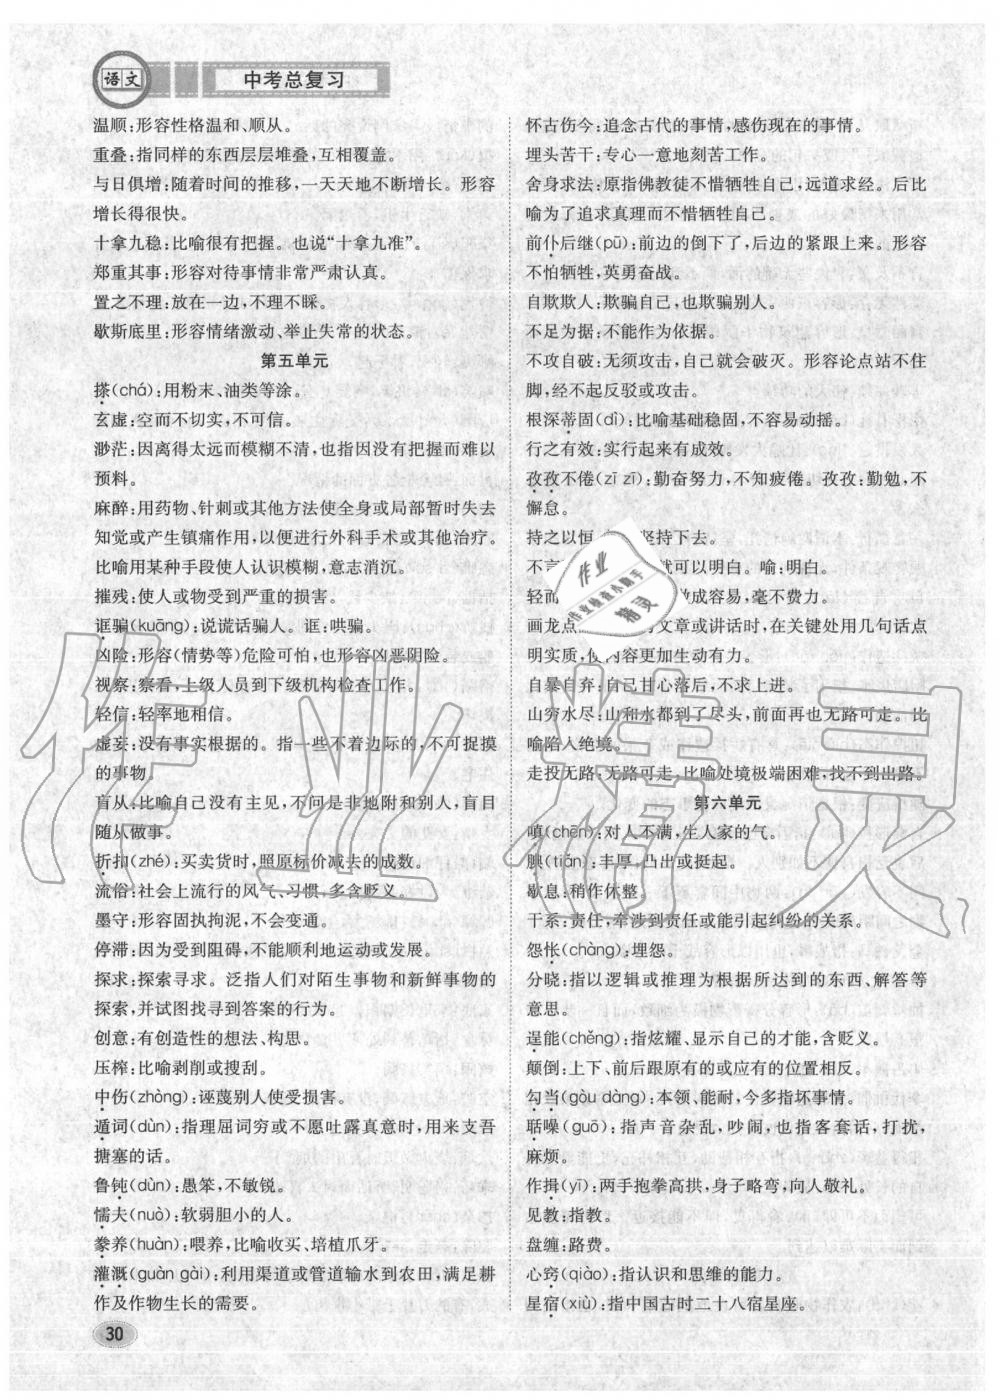 语文
中考总复习
温顺:形容性格温和、顺从。
重叠:指同样的东西层层堆叠,互相覆盖。
与日俱增:随着时间的推移,一天天地不断增长。形容
增长得很快。
十拿九稳:比喻很有把握。也说“十拿九准”。
郑重其事:形容对待事情非常严肃认真。
置之不理:放在一边,不理不睬。
歇斯底里:形容情绪激动、举止失常的状态。
第五单元
搽(chá):用粉末、油类等涂。
玄虚:空而不切实,不可信。
渺茫:因离得太远而模糊不清,也指因没有把握而难以
预料。
麻醉:用药物、针刺或其他方法使全身或局部暂时失去
知觉或产生镇痛作用,以便进行外科手术或其他治疗。
比喻用某种手段使人认识模糊,意志消沉。
摧残:使人或物受到严重的损害。
诓骗(kuāng):说谎话骗人。诓:哄骗。
凶险:形容(情势等)危险可怕,也形容凶恶阴险。
视察:察看,上级人员到下级机构检查工作。
轻信:轻率地相信。
虚妄:没有事实根据的。指一些不着边际的,不可捉摸
的事物。
盲从:比喻自己没有主见,不问是非地附和别人,盲目
随从做事。
折扣(zhé):买卖货时,照原标价减去的成数。
流俗:社会上流行的风气、习惯,多含贬义。
墨守:形容固执拘泥,不会变通。
停滞:因为受到阻碍,不能顺利地运动或发展。
探求:探索寻求。泛指人们对陌生事物和新鲜事物的
探索,并试图找寻到答案的行为。
创意:有创造性的想法、构思。
压榨:比喻剥削或搜刮。
中伤(zhòng):诬蔑别人使受损害。
遁词(dùn):指理屈词穷或不愿吐露真意时,用来支吾
搪塞的话。
鲁钝(dùn):愚笨,不敏锐。
懦夫(nuò):软弱胆小的人。
豢养(huàn):喂养,比喻收买、培植爪牙。
灌溉(guàn gài):利用渠道或管道输水到农田,满足耕
作及作物生长的需要。
30
怀古伤今:追念古代的事情,感伤现在的事情。
埋头苦干:专心一意地刻苦工作。
舍身求法:原指佛教徒不惜牺牲自己,远道求经。后比
喻为了追求真理而不惜牺牲自己。
前仆后继(pū):前边的倒下了,后边的紧跟上来。形容
不怕牺牲,英勇奋战。
自欺欺人:欺骗自己,也欺骗别人。
不足为据:不能作为依据。
不攻自破:无须攻击,自己就会破灭。形容论点站不住
脚,经不起反驳或攻击。
根深蒂固(dì):比喻基础稳固,不容易动摇。
行之有效:实行起来有成效。
孜孜不倦(zī zī):勤奋努力,不知疲倦。孜孜:勤勉,不
懈怠。
持之以恒 坚持下去。
不言 就可以明白。喻:明白。
轻而 做成容易,毫不费力。
画龙点 文章或讲话时,在关键处用几句话点
明实质,使内容更加生动有力。
自暴自弃:自己甘心落后,不求上进。
山穷水尽:山和水都到了尽头,前面再也无路可走。比
喻陷入绝境。
走投无路:无路可走,比喻处境极端困难,找不到出路。
第六单元
嗔(chēn):对人不满,生人家的气。
腆(tiǎn):丰厚,凸出或挺起。
歇息:稍作休整。
干系:责任,牵涉到责任或能引起纠纷的关系。
怨怅(chàng):埋怨。
分晓:指以逻辑或推理为根据所达到的东西、解答等
意思。
逞能(chěng):指炫耀、显示自己的才能,含贬义。
颠倒:上下、前后跟原有的或应有的位置相反。
勾当(gòu dàng):本领、能耐,今多指坏事情。
聒噪(guō):指声音杂乱,吵闹,也指客套话,打扰,
麻烦。
作揖(yī):两手抱拳高拱,身子略弯,向人敬礼。
见教:指教。
盘缠:路费。
心窍(qiào):指认识和思维的能力。
星宿(xiù):指中国古时二十八宿星座。
作业
作业检查小助手
精灵
作业精灵